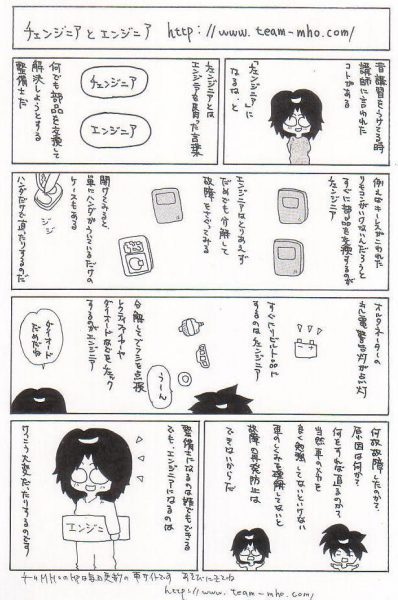 チェンジニアとエンジニア http://www.team-mho.com/
昔講習をうけてる時
講師に言われた
コトがある
「チェンジニア」に
なるなと
チェンジニアとは
エンジニアを真似た言葉
チェンジニア
エンジニア
何でも部品を交換して
解決しようとする
整備士だ
例えばキーレスがこわれた
リモコンがいけないんだろうと
すぐに部品を交換するのが
チェンジニア
エンジニアはとりあえず
だめでも分解して
故障をさぐってみる
開けてみると
単にハンダがういているだけの
ケースもある
ハンダだけで直ったりするのだ
ジジ
オルタネーターの
充電警告灯が点灯
すぐにリビルト品に
するのはチェンジニア
分解してブラシを点検
レクティファイヤー
ダイオードなどをチェック
するのがエンジニア
うーん
ダイオード
だめだね
何故故障したのか?
原因は何か?
何をすれば直るのか?
当然車のメカを
良く勉強してないといけない
車のしくみを理解してないと
故障の再発防止は
できないからだ
整備士になるのは誰でもできる
でも、エンジニアになるのは
けっこう大変だったりするのです
エンジニ
チームMHOのHPは毎日更新の車サイトです あそびにきてね
http://www.team-mho.com/